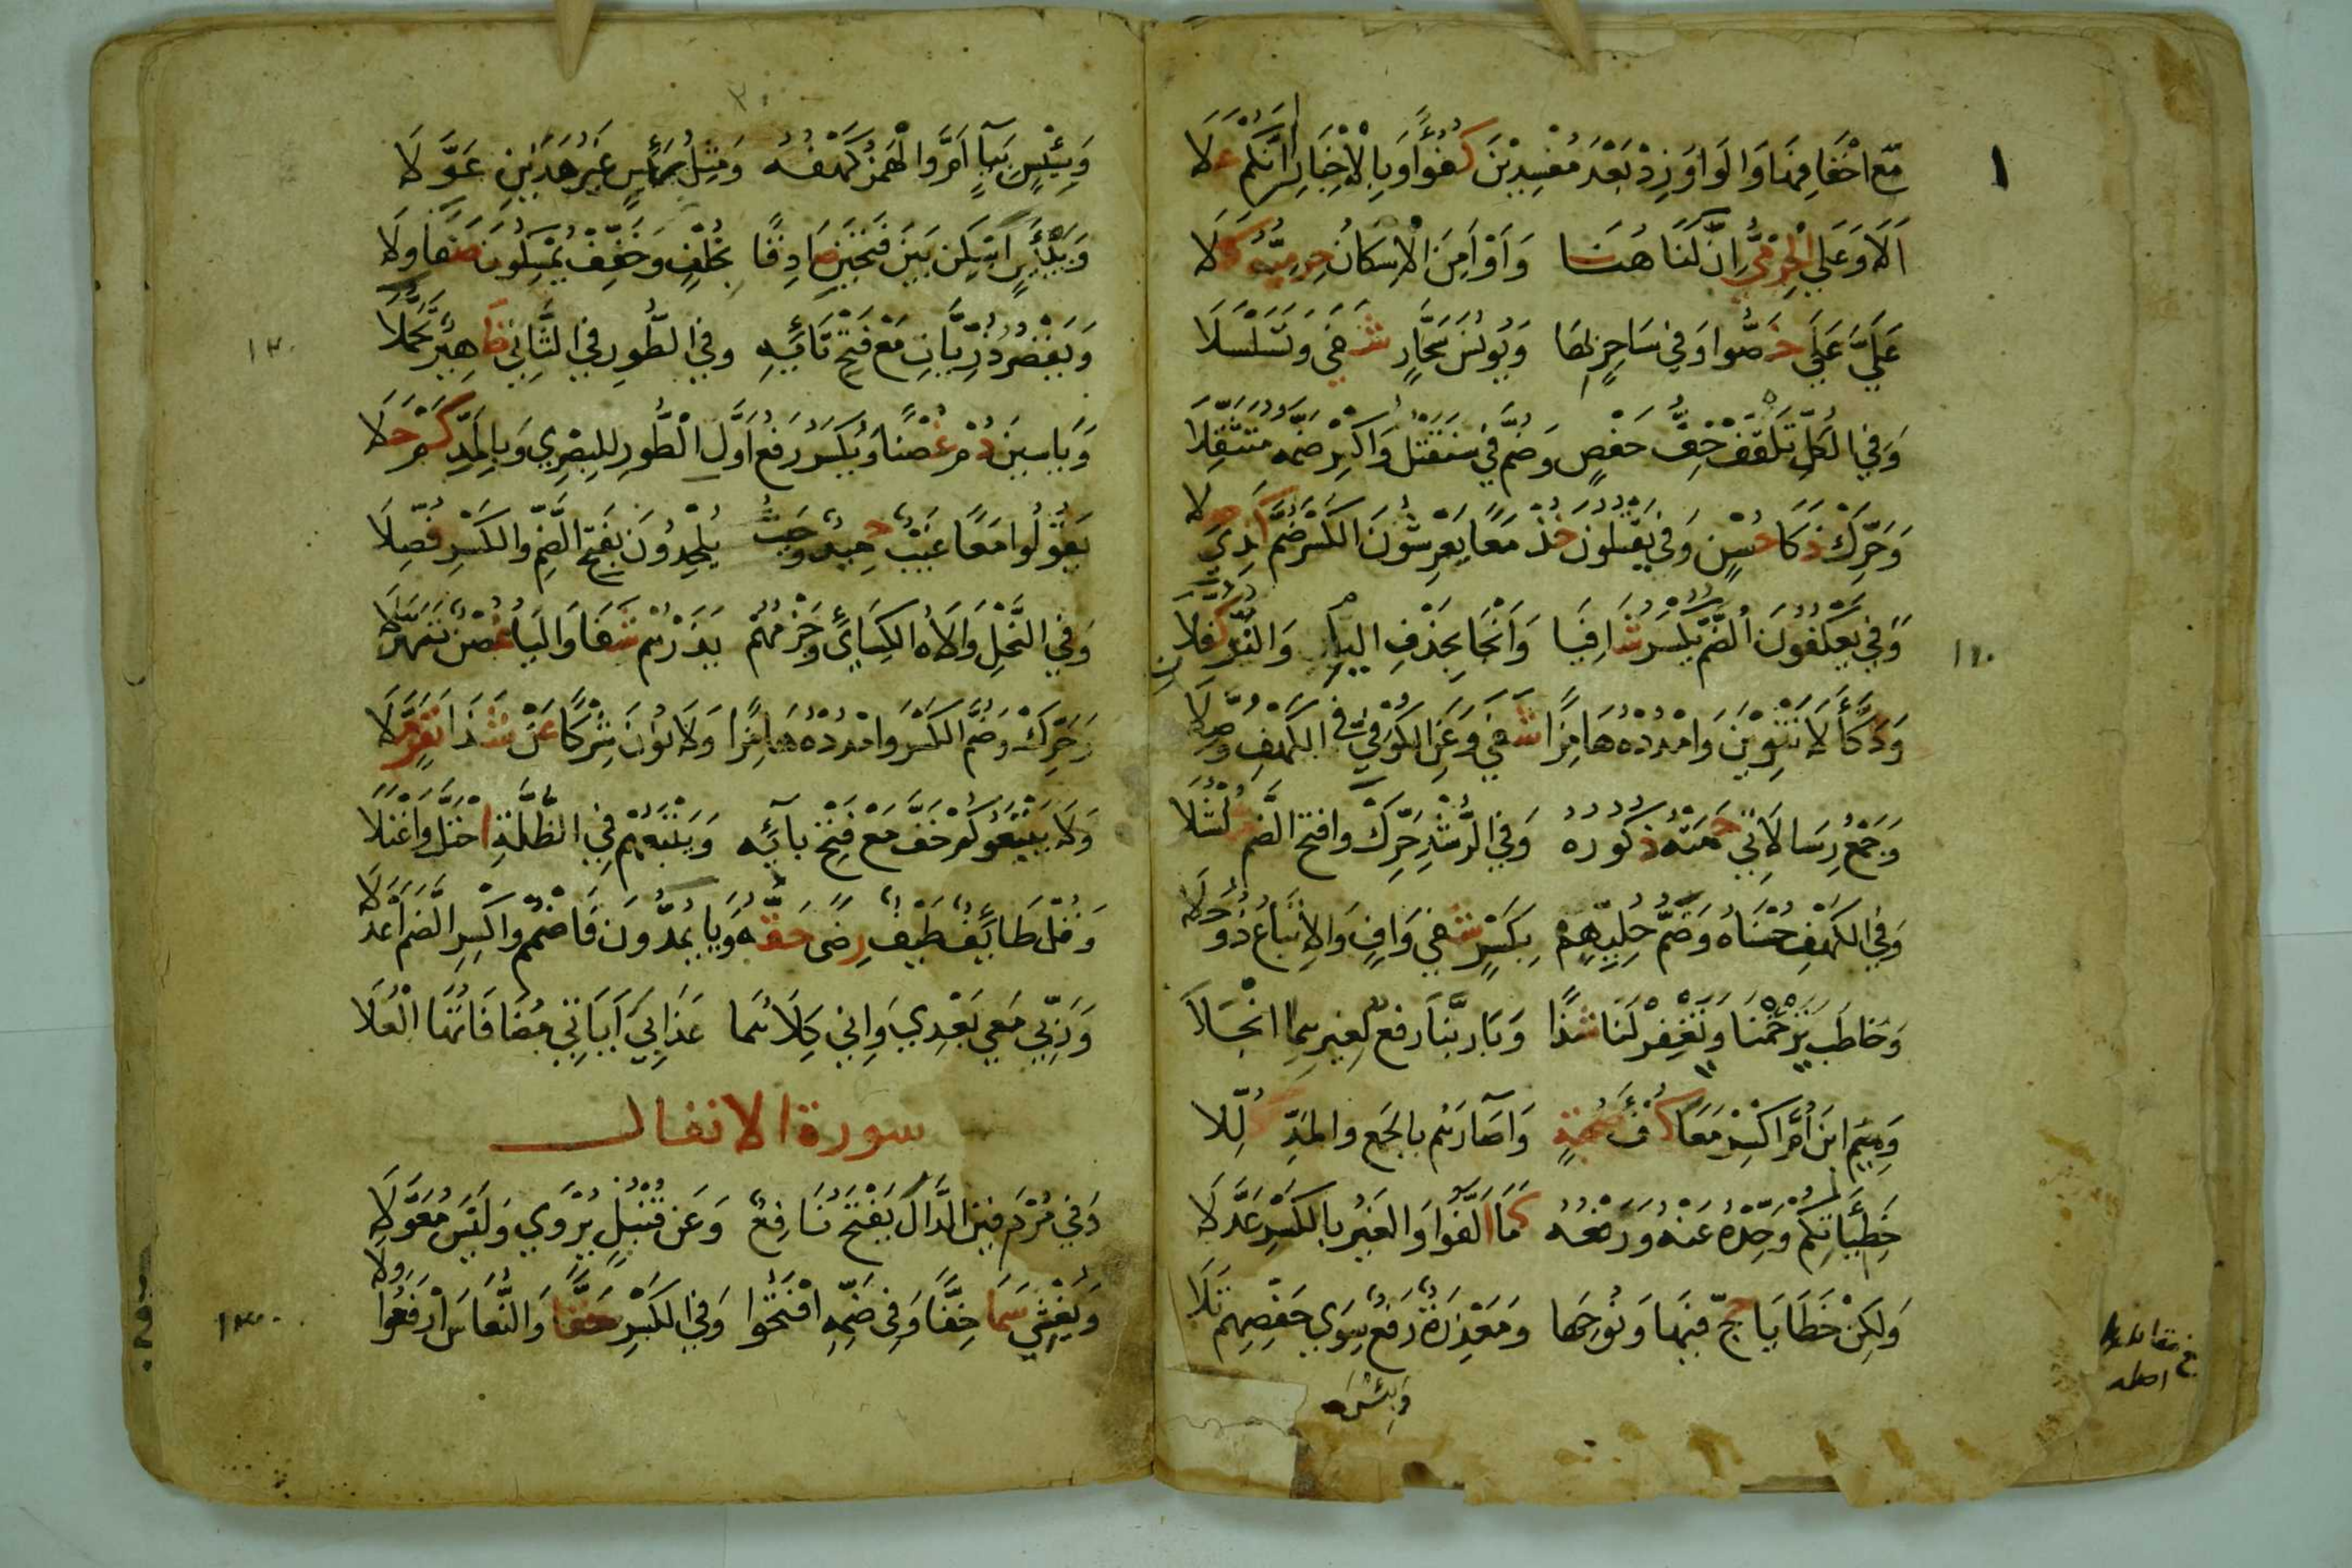 مَعَ احْقَافِهَا وَالْوَاوَ زِدْ بَعْدَ مُفْسِدِيْنَ كُفُؤًا وَبِالْاِخْبَارِ اِنَّكُمْ عَلَا
اَلَا وَعَلَى الْحِرْمِيُّ اِنَّ لَنَا هُنَا وَاَوْ اَمِنَ الْاِسْكَانُ حِرْمِيُّهُ كَلَا
عَلَيَّ عَلَى خَصُّوا وَفِي سَاحِرٍ بِهَا وَيُونُسَ سَحَّارٍ شَفَى وَتَسَلْسَلَا
وَفِي الْكُلِّ تَلْقَفْ خِفُّ حَفْصٍ وَضُمَّ فِي سَنَقْتُلُ وَاكْسِرْ ضَمَّهُ مُتَثَقِّلَا
وَحَرِّكْ ذَكَا حُسْنٍ وَفِي يَقْتُلُونَ خُذْ مَعًا يَعْرِشُونَ الْكَسْرُ ضُمَّ كَذِي حَلَا
وَفِي يَعْكُفُونَ الضَّمُّ يُكْسَرُ شَافِيًا وَاَنْجَا بِحَذْفِ الْيَاءِ وَالنُّونِ كَفَّلَا
وَدَكَّاءَ لَا تَنْوِيْنَ وَامْدُدْهُ هَامِزًا شَفَى وَعَنِ الْكُوفِيِّ فِي الْكَهْفِ وُصِّلَا
وَجَمْعُ رِسَالَاتِي حَمَتْهُ ذُكُورُهُ وَفِي الرُّشْدِ حَرِّكْ وَافْتَحِ الضَّمَّ شُلْشُلَا
وَفِي الْكَهْفِ حُسْنَاهُ وَضَمُّ حُلِيِّهِمْ بِكَسْرٍ شَفَى وَافٍ وَالْاِتْبَاعُ ذُو حُلَا
وَخَاطَبَ يَرْحَمْنَا وَيَغْفِرْ لَنَا شَذًا وَبَا رَبَّنَا رَفْعٌ لِغَيْرِهِمَا انْجَلَا
وَمِيْمَ ابْنَ اُمَّ اكْسِرْ مَعًا كُفْءَ صُحْبَةٍ وَاٰصَارَهُمْ بِالْجَمْعِ وَالْمَدِّ كُلِّلَا
خَطِيْئَاتُكُمْ وَحِّدْهُ عَنْهُ وَرَفْعُهُ كَمَا اَلَّفُوا وَالْغَيْرُ بِالْكَسْرِ عَدَّلَا
وَلَكِنْ خَطَايَا حَجَّ فِيْهَا وَنُوحِهَا وَمَعْذِرَةً رَفْعٌ سِوَى حَفْصِهِمْ تَلَا
وَبِئْسٍ
وَبِيْسٍ بِيَاءٍ اَمَّ وَالْهَمْزُ كَهْفُهُ وَمِثْلُ رَئِيْسٍ غَيْرُ هٰذَيْنِ عَوَّلَا
وَبَيْئَسٍ اَسْكِنْ بَيْنَ فَتْحَيْنِ صَادِقًا بِخُلْفٍ وَخَفِّفْ يُمْسِكُونَ صَفَا وِلَا
وَيَقْصُرُ ذُرِّيَّاتِ مَعْ فَتْحِ تَائِهِ وَفِي الطُّورِ فِي الثَّانِي ظَهِيْرٌ تَحَمَّلَا
وَيَاسِيْنَ دُمْ غُصْنًا وَيُكْسَرُ رَفْعُ اَوَّلِ الطُّورِ لِلْبَصْرِي وَبِالْمَدِّ كَمْ حَلَا
يَقُولُوا مَعًا غَيْبٌ حَمِيْدٌ وَحَيْثُ يُلْحِدُونَ بِفَتْحِ الضَّمِّ وَالْكَسْرِ فُصِّلَا
وَفِي النَّحْلِ وَالَاهُ الْكِسَائِي وَجَزْمُهُمْ يَذَرْهُمْ شَفَا وَالْيَاءُ غُصْنٌ تَهَدَّلَا
وَحَرِّكْ وَضُمَّ الْكَسْرَ وَامْدُدْهُ هَامِزًا وَلَا نُونَ شِرْكًا عَنْ شَذَا نَفَرٍ مَلَا
وَلَا يَتْبَعُوكُمْ خَفَّ مَعْ فَتْحِ بَائِهِ وَيَتْبَعُهُمْ فِي الظُّلَّةِ احْتَلَّ وَاعْتَلَا
وَقُلْ طَائِفٌ طَيْفٌ رِضًى حَقُّهُ وَيَا يَمُدُّونَ فَاضْمُمْ وَاكْسِرِ الضَّمَّ اَعْدَلَا
وَرَبِّي مَعِي بَعْدِي وَاِنِّي كِلَاهُمَا عَذَابِيَ اٰيَاتِي مُضَافَاتُهَا الْعُلَا
سورة الانفال
وَفِي مُرْدِفِيْنَ الدَّالَ يَفْتَحُ نَافِعٌ وَعَنْ قُنْبُلٍ يُرْوَى وَلَيْسَ مُعَوَّلَا
وَيُغْشِي سَمَا خِفًّا وَفِي ضَمِّهِ افْتَحُوا وَفِي الْكَسْرِ حَقًّا وَالنُّعَاسَ ارْفَعُوا وِلَا